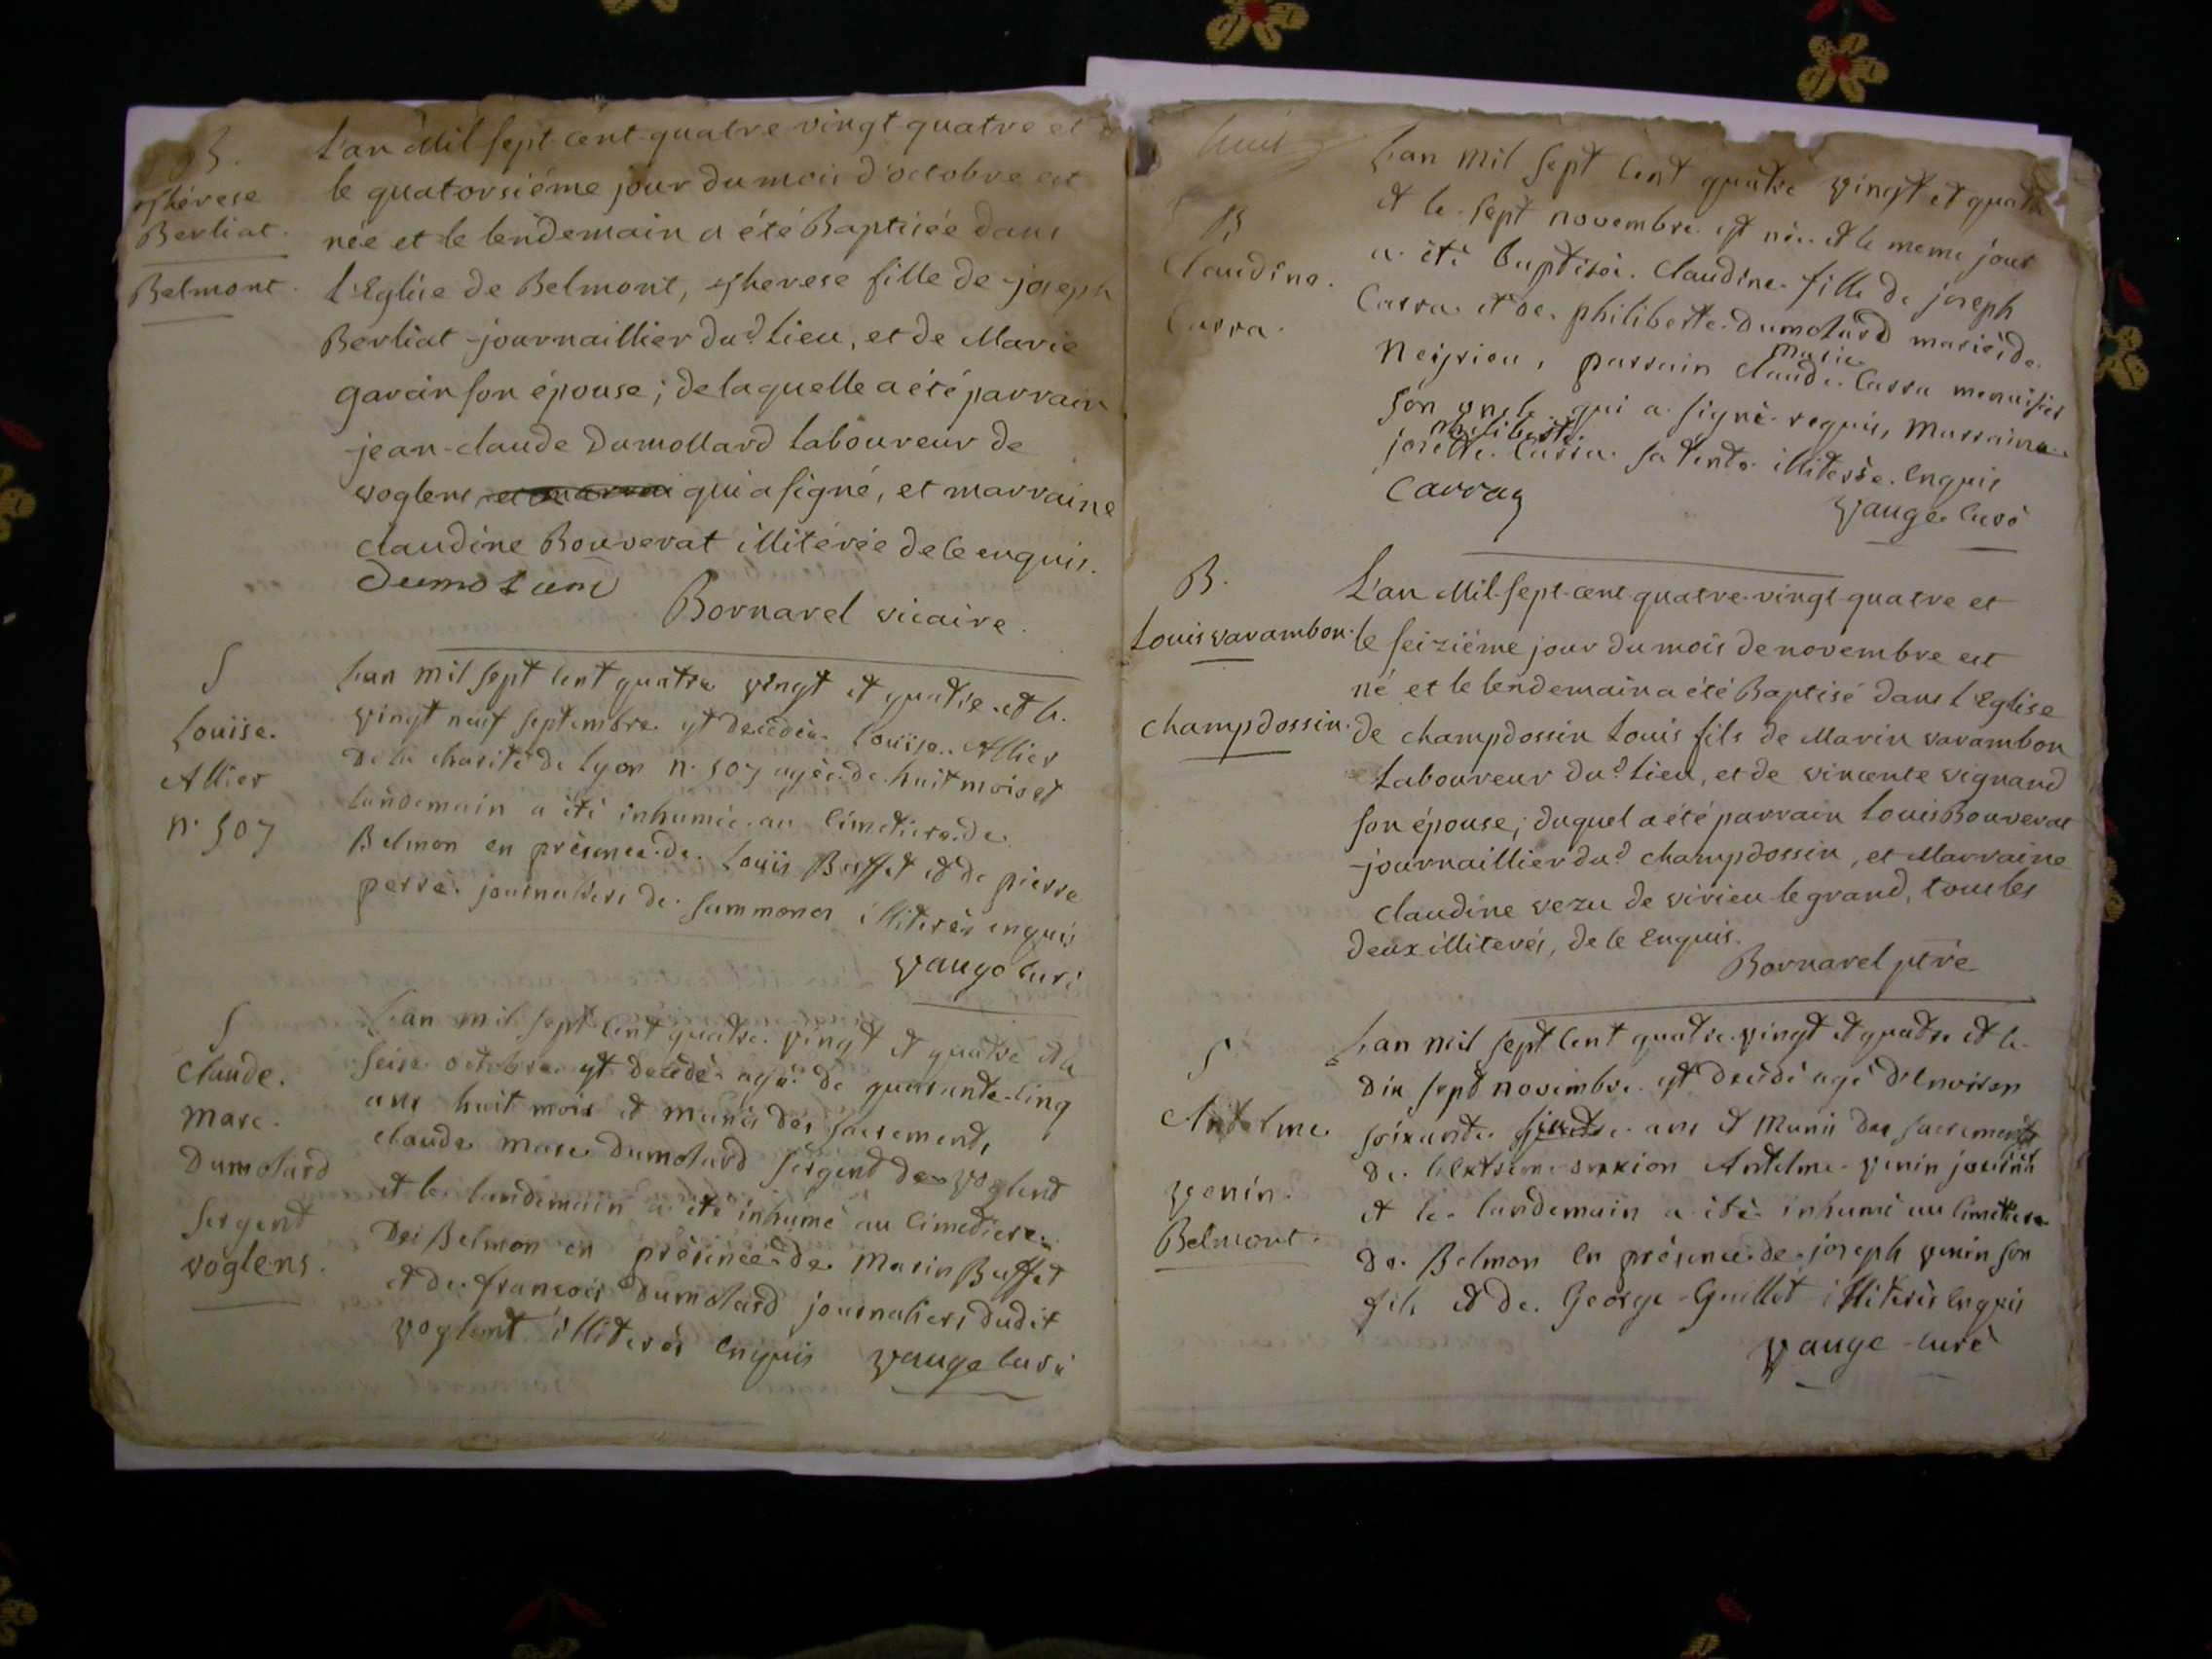 B.
Thérese
Berliat.
Belmont.
L'an Mil sept-cent-quatre vingt-quatre et
le quatorsiéme jour du mois d'octobre est
née et le lendemain a été Baptisée dans
L'Eglise de Belmont, Therese fille de joseph
Berliat journaillier dud. Lieu, et de Marie
garcin son épouse; de laquelle a été parrain
jean-claude Dumollard Laboureur de
voglens, qui a signé, et marraine
claudine Bouverat illitérée de ce enquis.
Dumolard
Bornarel vicaire.
S
Louise.
Allier
n. 507
Lan mil sept Cent quatre vingt et quatre et le
vingt neuf septembre est decedée Louise Allier
de la charité de Lyon n. 507 agée de huit mois et
landemain a été inhumée au Cimetiere de
Belmon en présence de Louis Buffet et de pierre
perré journaliers de Summonon illiterés enquis
vauge Curé
S
Claude.
Marc.
Dumolard
Sergent
voglens.
Lan mil sept Cent quatre vingt et quatre et le
seise octobre est decedé agé de quarante-Cinq
ans huit mois et Munis des sacrements
claude marc Dumolard sergent de voglent
et le landemain a été inhumé au Cimetiere
de Belmon en présence de Marin Buffet
et de françois Dumolard journaliers dudit
voglent illiterés Enquis vauge Curé
huit
B
Claudine.
Carra.
Lan mil sept Cent quatre vingt et quatre
et le sept novembre est née et le meme jour
a été Baptisée. Claudine fille de joseph
Carra et de philiberte Dumolard mariés de
Neyrieu, parrain claude marie Carra menuisier
son oncle qui a signé requis, marraine
josette philiberte Carra sa tente illiterée Enquis
Carraz
vauge Curé
B.
Louis varambon.
champdossin.
L'an Mil-sept-cent-quatre-vingt-quatre et
le seiziéme jour du mois de novembre est
né et le lendemain a été Baptisé dans l'Eglise
de champdossin Louis fils de Marin varambon
Laboureur dud. Lieu, et de vincente vignand
son épouse; duquel a été parrain Louis Bouverat
journaillier dud. champdossin, et Marraine
claudine vezu de virieu-le grand, tous les
deux illiterés, de ce Enquis.
Bornarel ptre
S
Antelme
venin.
Belmont.
Lan mil sept Cent quatre vingt et quatre et le
dix sept novembre est decedé agé d'Environ
soixante ans et Munis des sacrements
de Antelme venin
et le landemain a été inhumé au Cimetiere
de Belmon En présence de joseph venin son
fils et de George Guillot illiterés Enquis
vauge-Curé